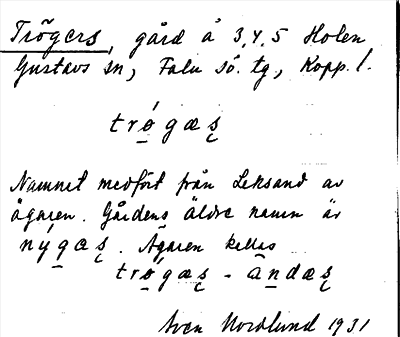 Trögers, gård å 3,4,5 Holen
Gustavs sn, Falu sö. tg, Kopp. l.
trǿ̠gæs̨
Namnet medfört från Leksand av
ägaren. Gårdens äldre namn är
ný̠gæs̨. Ägaren kallas
trǿ̠gæs̨ - ān̠dæs̨
Sven Nordlund 1931